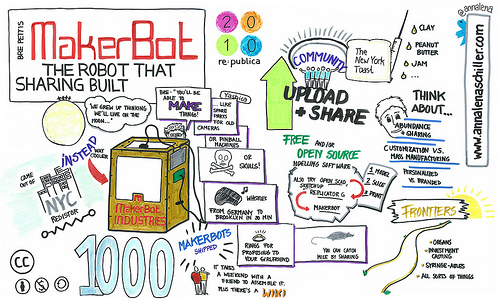 BRE PETTIS
MakerBot
THE ROBOT THAT
SHARING BUILT
2010
re:publica
COMMUNITY
UPLOAD
+ SHARE
The
New York
Toast
CLAY
PEANUT
BUTTER
JAM
...
@annalena
www.annalenaschiller.com
THINK
ABOUT...
ABUNDANCE
+ SHARING
CUSTOMIZATION VS.
MASS MANUFACTURING
PERSONALIZED
VS. BRANDED
FRONTIERS
• ORGANS
• INVESTMENT
CASTING
• SYRINGE-ABLES
• ALL SORTS OF THINGS
"WE GREW UP THINKING
WE'LL LIVE ON THE
MOON..."
INSTEAD
WAY
COOLER
CAME
OUT OF
NYC
RESISTOR
BRE: "YOU'LL BE
ABLE TO
MAKE
THINGS!
Yashica
... LIKE
SPARE
PARTS
FOR OLD
CAMERAS
OR PINBALL
MACHINES
OR
SKULLS!
WHISTLES
FROM GERMANY TO
BROOKLYN IN 20 MIN
MakerBot
INDUSTRIES
FREE AND/OR
OPEN SOURCE
MODELLING SOFTWARE
ALSO TRY OPEN SCAD,
SKETCHUP
REPLICATOR G
MAKERBOT
1 MODEL
2 SLICE
3 PRINT
1000
MAKERBOTS
SHIPPED
RINGS FOR
PROPOSING TO
YOUR GIRLFRIEND
YOU CAN CATCH
MICE BY SHARING
IT TAKES
A WEEKEND WITH A
FRIEND TO ASSEMBLE IT.
PLUS THERE'S A WIKI
CC